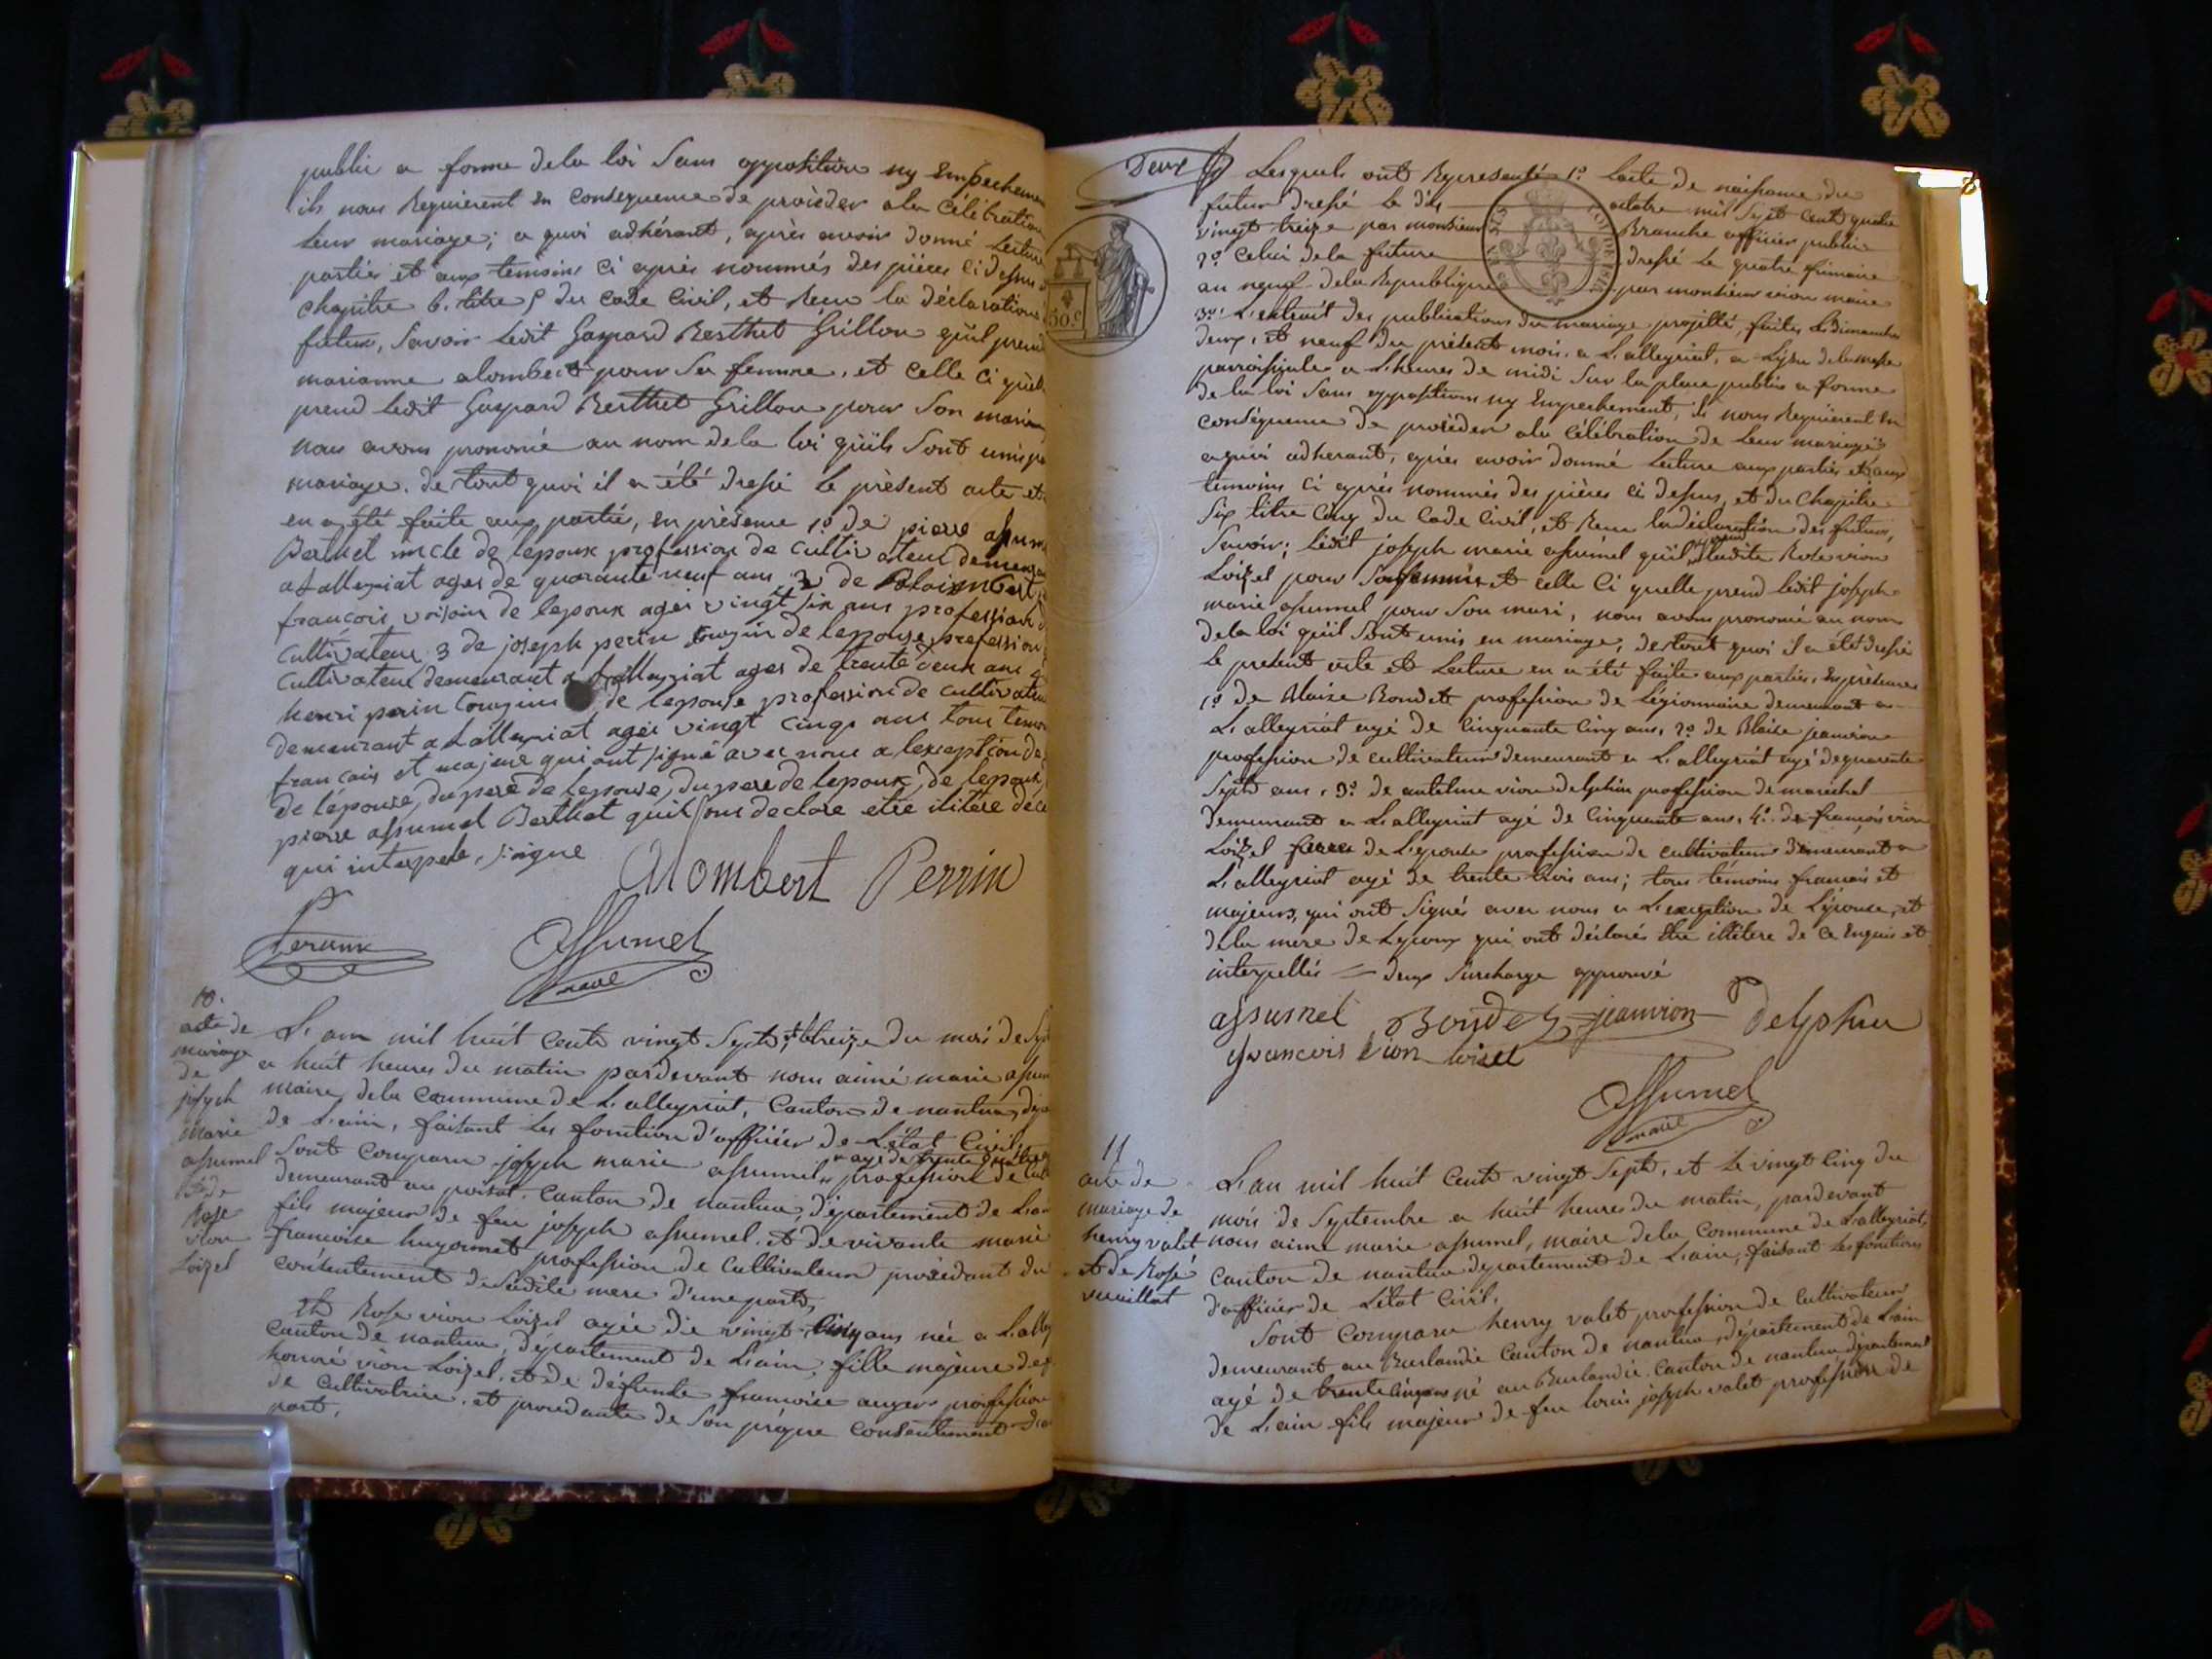 public a forme de la loi sans opposition ny Empecheme
ils nous Requierent en consequence de proceder a la Célébration
Leur mariage; a quoi adhérant, après avoir donné Lecture
parties et aux temoins ci après nommés des pièces ci dessus
chapitre 6. titre 5 du Code Civil, et Recu la déclaration
futurs, Savoir Ledit Gaspard Berthet Grillon qu'il prend
marianne alombert pour Sa femme, et Celle Ci qu'elle
prend Ledit Gaspard Berthet Grillon pour Son mari
nous avons prononcé au nom de la loi qu'ils Sont unis
mariage. de tout quoi il a été dressé le présent acte et
en a été faite aux partie, en présence 1º de pierre assum
Berthet oncle de lepoux profession de cultivateur demeurant
a Lalleyriat ages de quarante neuf ans 2 de
francois voisin de lepoux agés vingt six ans profession d
cultivateur 3 de joseph perin cougin de lepouse profession
cultivateur demeurant a Lalleyriat ages de trente deux ans 4
henri perin cougin de lepouse profession de cultivateur
demeurant a Lalleyriat agés vingt cinqs ans tous temoi
francais et majeur qui ont signé avec nous a lexception de
de lépouse, du pere de lepouse, du pere de lepoux, de lepoux
pierre assumel Berthet quil ont declare etre ilitere de ce
qui interpele, soigne
Alombert Perrin
Perrin
Assumel
maire
10.
acte de
mariage
de
joseph
marie
assumel
et de
Rose
vion
Loizel
L'an mil huit Cents vingt Sept, et treize du mois de Sep
a huit heures du matin pardevant nous aimé marie assum
maire de la Commune de L'alleyriat, Canton de nantua, dépa
de L'ain, faisant les fonction d'officier de L'état Civil,
Sont Comparu joseph marie assumel " agé de trente quatre
demeurant au poizat, Canton de nantua, département de L'ain
" profession de cult
fils majeur de feu joseph assumel et de vivante marie
francoise hugonnet profession de Cultivateur procédant du
consentement de Sadite mere d'une part,
Et Rose vion Loizel agée de vingt Cinq ans née a L'alley
Canton de nantua, département de L'ain, fille majeure de f
honoré vion Loizel, et de défunte francoise auger profession
de Cultivatrice, et procedante de Son propre Consentement d'au
part,
Deux
50 c
Lesquels ont Representé 1º Lacte de naissance du
futur dressé Le dix octobre mil Sept Cents quatre
vingt treize par monsieur Branche officier public
2º Celui de la future dressé Le quatre frimaire
an neuf de la Republique par monsieur vion maire
3º L'extrait des publications du mariage projetté, faites Les dimanche
deux, et neuf du présent mois, a L'alleyriat, a L'issu de la messe
parroissiale a L'heures de midi Sur la place public a forme
de la loi Sans opposition ny Empechement, ils nous Requierent En
conséquence de procéder a la Célébration de Leur mariage;
a quoi adherant, après avoir donné Lecture aux parties et aux
temoins ci après nommés des pièces ci dessus, et du Chapitre
Six titre Cinq du Code Civil, et Recu la déclaration des futurs,
Savoir; Ledit joseph marie assumel qu'il prend Ladite Rose vion
Loizel pour Sa femme et Celle Ci quelle prend Ledit joseph
marie assumel pour Son mari, nous avons prononcé au nom
de la loi qu'il Sont unis en mariage, de tout quoi il a été dressé
Le présent acte et Lecture en a été faite aux parties, En présence
1º de Blaize Rondet profession de Légionnaire demeurant a
L'alleyriat agé de Cinquante Cinq ans, 2º de Blaise jeanvion
profession de cultivateur demeurant a L'alleyriat agé de quarante
Sept ans, 3º de antelme vion delphin profession de maréchal
demeurant a L'alleyriat agé de Cinquante ans, 4º de francois vion
Loizel frere de L'épouse profession de cultivateur demeurant a
L'alleyriat agé de trente trois ans; tous témoins francais et
majeurs, qui ont Signés avec nous a L'exception de L'épouse, et
de la mere de L'epoux qui ont déclarés être illétere de Ce Enquis et
interpellés = deux Surcharge approuvé
assumel Rondet jeanvion Delphin
francois vion loizel
Assumel
maire
11
acte de
mariage de
henry valet
et de Rose
vuaillat
L'an mil huit Cents vingt Sept, et Le vingt Cinq du
mois de Septembre a huit heures du matin, pardevant
nous aimé marie assumel, maire de la Commune de L'alleyriat,
Canton de nantua département de L'ain, faisant Les fonctions
d'officier de L'état Civil.
Sont Comparu henry valet profession de Cultivateur
demeurant au Burlandié Canton de nantua, département de L'ain
agé de trente cinq ans né au Burlandié, Canton de nantua département
de L'ain fils majeur de feu Louis joseph valet profession de